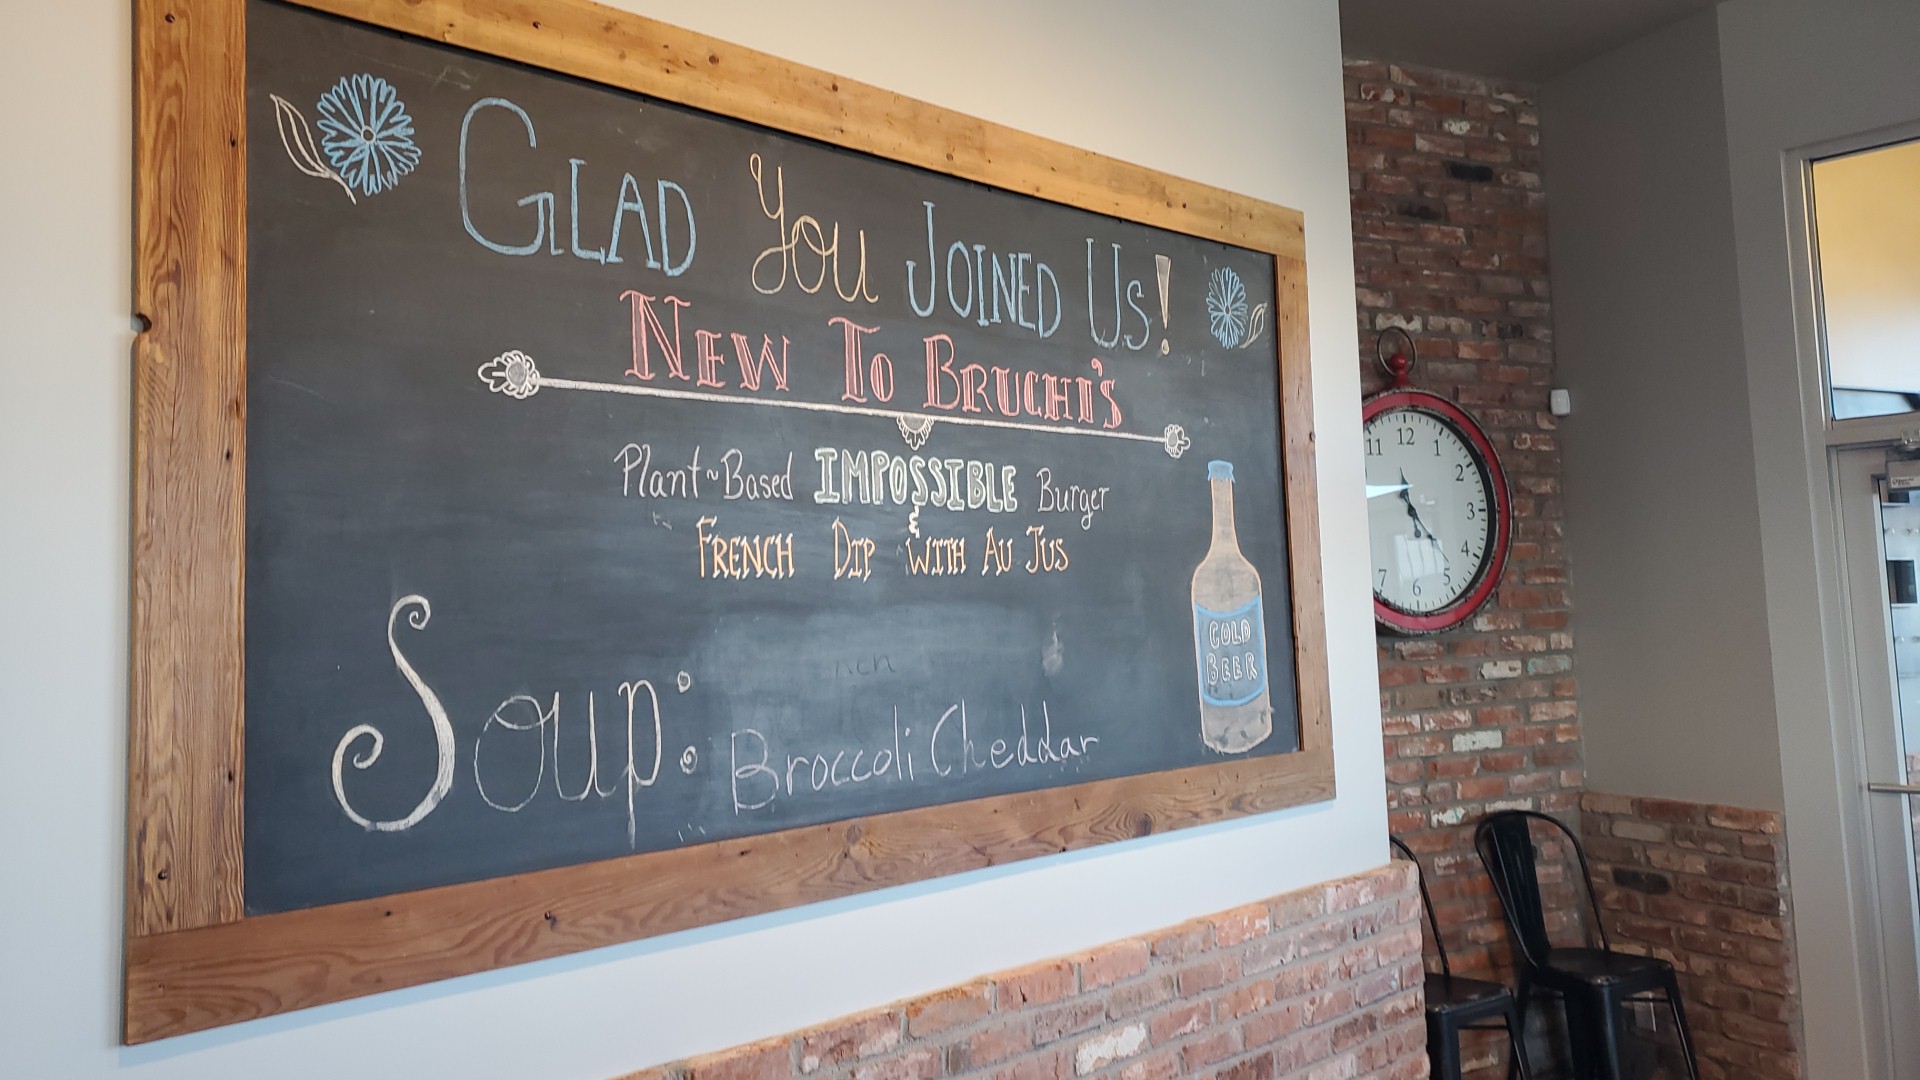 GLAD YOU JOINED US!
NEW TO BRUCHI'S
Plant~Based IMPOSSIBLE Burger
FRENCH DIP WITH AU JUS
Soup: Broccoli Cheddar
COLD
BEER
11 12 1
2
3
4
5
6
7